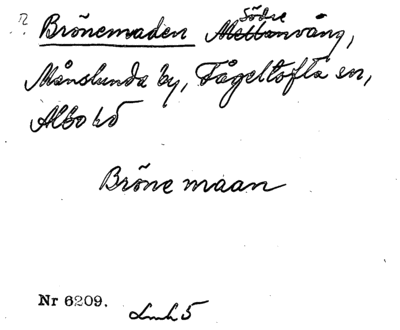 ? Brönemaden Södre Mellanvång,
Månslunda by, Fågeltofta sn,
Albo hd
Bröne maan
Nr 6209. Lmh 5